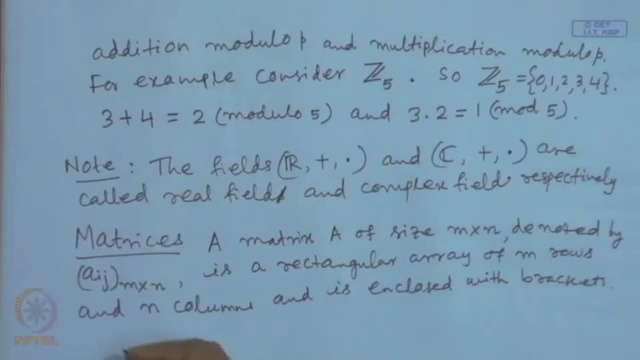 © CET
I.I.T. KGP
addition modulo p and multiplication modulo p.
For example consider ℤ₅. So ℤ₅ = {0,1,2,3,4}.
3+4 = 2 (modulo 5) and 3·2 = 1 (mod 5).
Note: The fields (ℝ, +, ·) and (ℂ, +, ·) are
called real field and complex field respectively
Matrices A matrix A of size m×n, denoted by
(aij)m×n, is a rectangular array of m rows
and n columns and is enclosed with brackets.
NPTEL